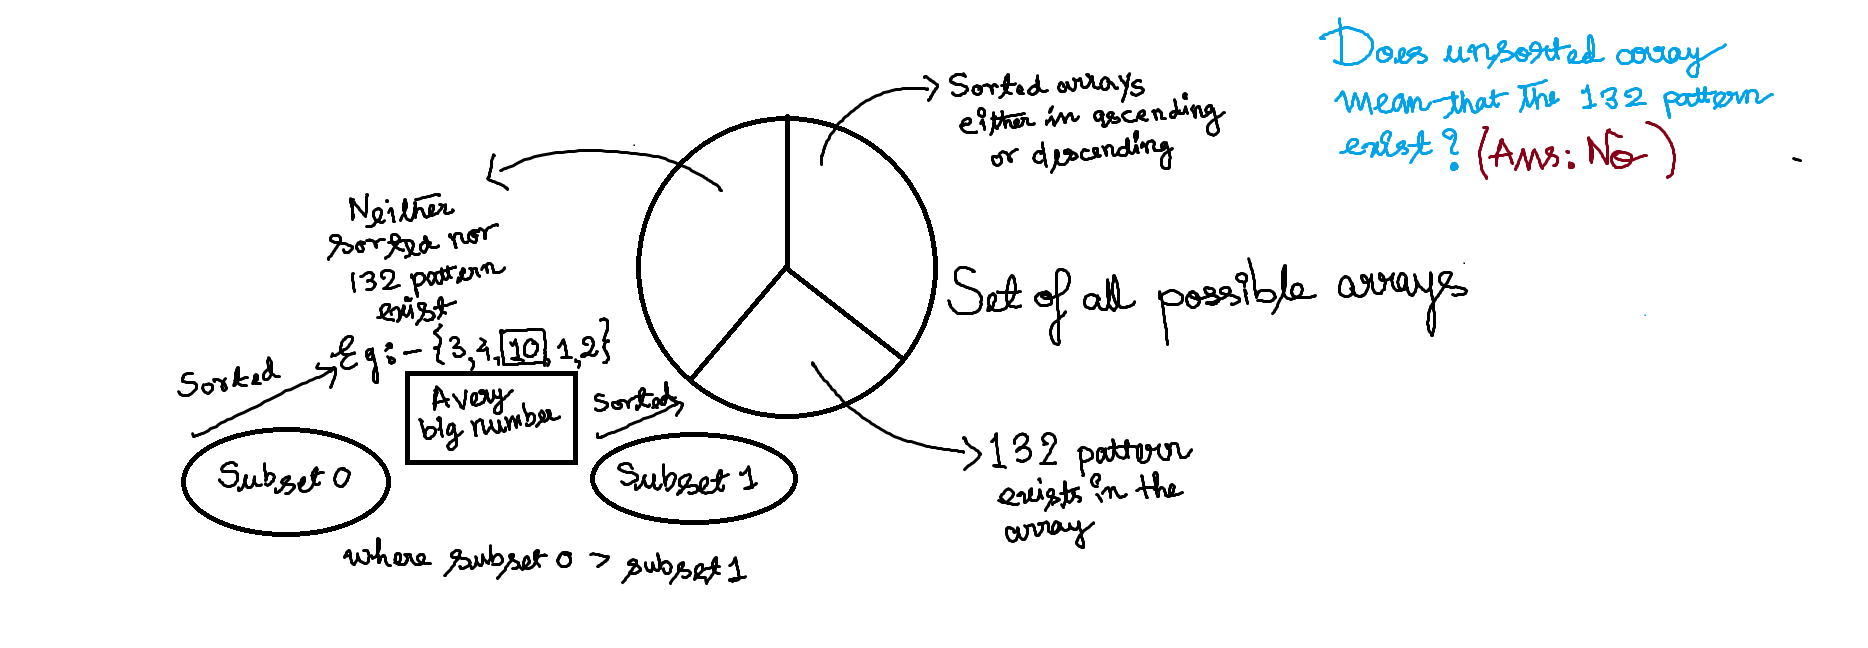 Does unsorted array
mean that the 132 pattern
exist? (Ans: No)
Sorted arrays
either in ascending
or descending
Neither
sorted nor
132 pattern
exist
Eg:- {3,4,10,1,2}
Sorted
A very
big number
Sorted
Subset 0
Subset 1
where subset 0 > subset 1
Set of all possible arrays
132 pattern
exists in the
array